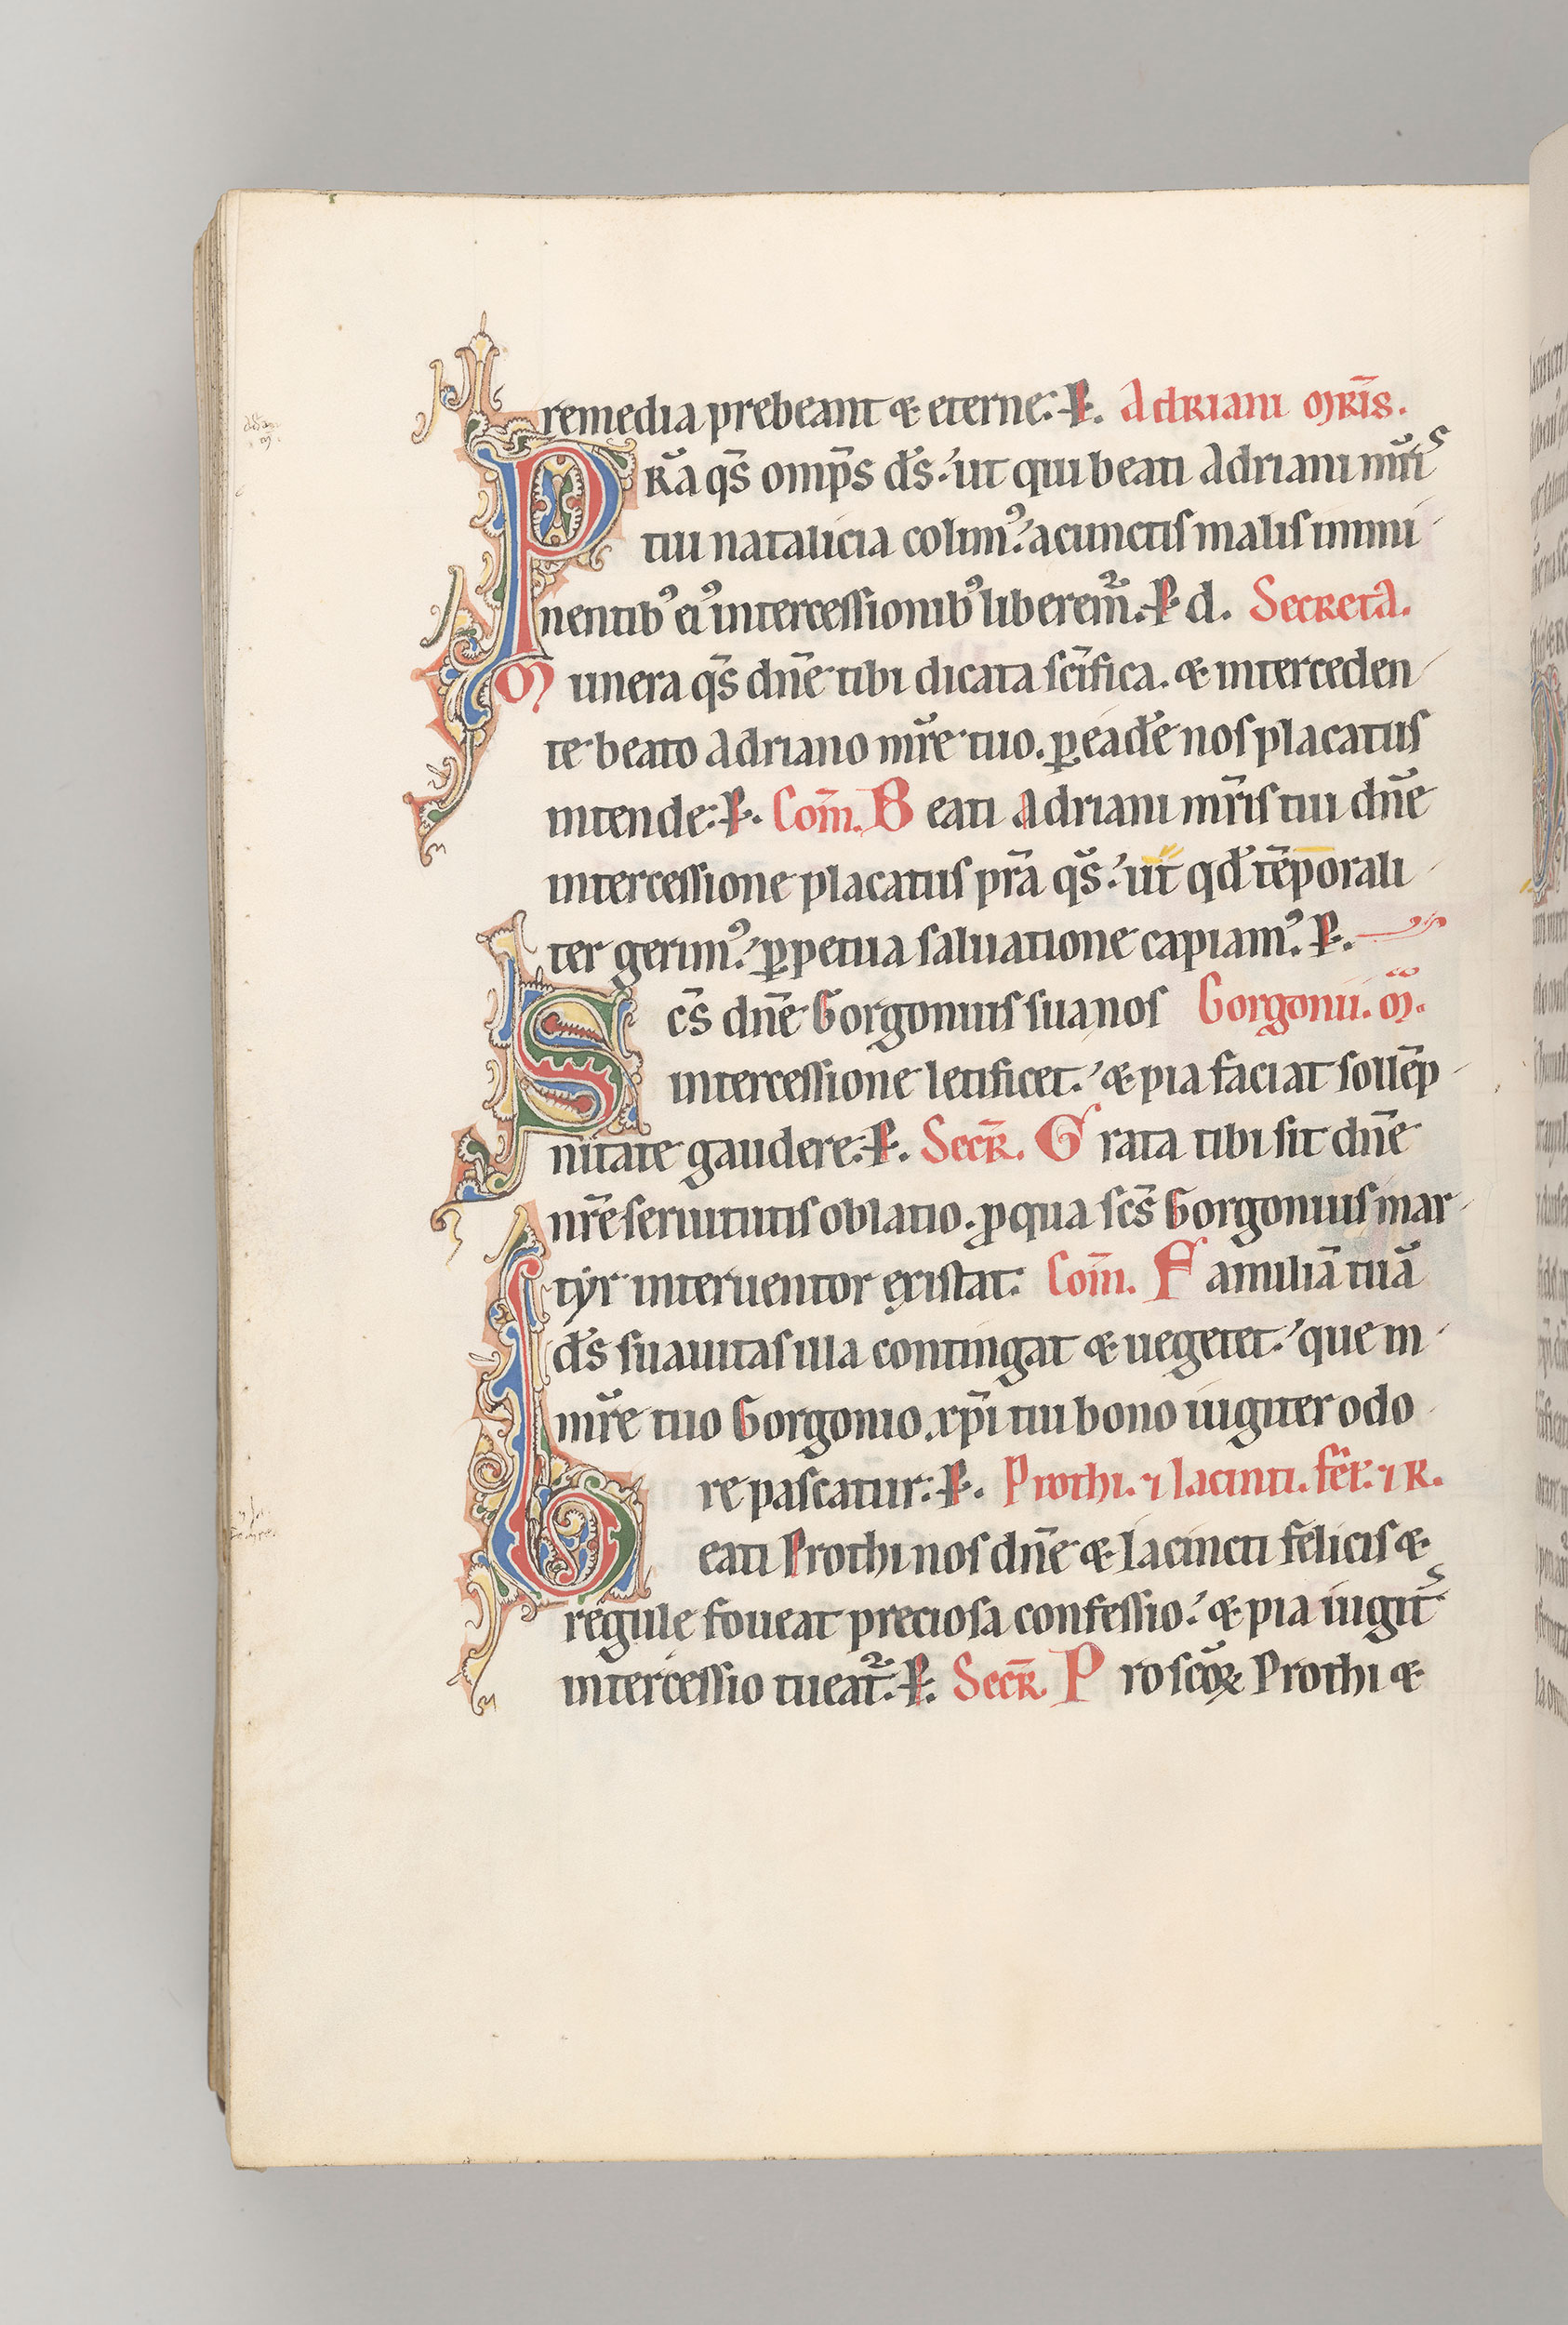 remedia prebeant & eterne: P. Adriani mr̄is.
PRa᷒ qs̄ omp̄s ds̄: ut qui beati Adriani mr̄is
tui natalicia colim᷒: a cunctis malis immi
nentib᷒ ei᷒ intercessionib᷒ liberem̄. P d. Secreta.
Munera qs̄ dn̄e tibi dicata sc̄ifica. & interceden
te beato Adriano mr̄e tuo. ꝑ eadē nos placatus
intende: P. Com̄. Beati Adriani mr̄is tui dn̄e
intercessione placatus pr̄a qs̄: ut qd̄ tēporali
ter gerim᷒: ꝑpetua saluatione capiam᷒. P.
Sc̄s dn̄e Gorgonius sua nos Gorgonii. m̄.
intercessione letificet: & pia faciat sollēp
nitate gaudere: P. Secr̄. Grata tibi sit dn̄e
nr̄e seruitutis oblatio. ꝓ qua sc̄s Gorgonius mar
tyr interuentor existat: Com̄. Familiā tuā
ds̄ suauitas illa contingat & uegetet: que in
mr̄e tuo Gorgonio. xp̄i tui bono iugiter odo
re pascatur: P. Prothi. ⁊ Iacinti. fel̄. ⁊ R.
Beati Prothi nos dn̄e & Iacincti felicis &
regule foueat preciosa confessio: & pia iugit̄
intercessio tueat̄. P. Secr̄. Pro sc̄oꝝ Prothi &